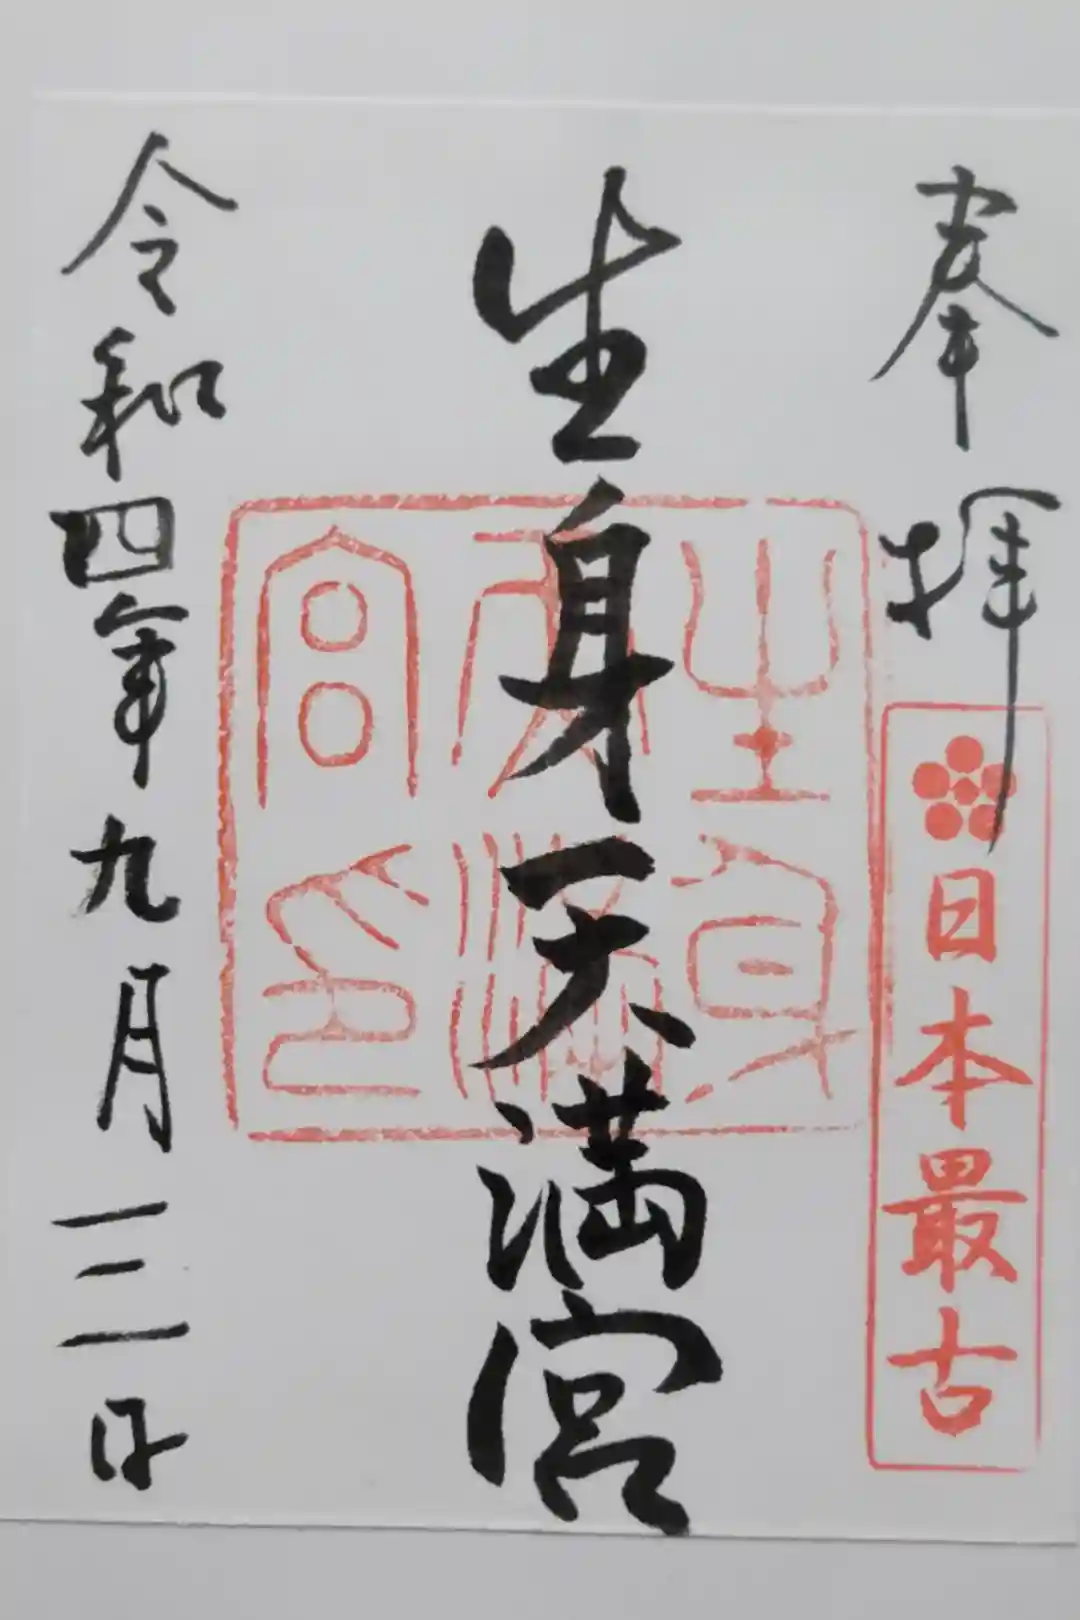 奉拝
日本最古
生身天満宮
生身天満宮印
令和四年九月三日